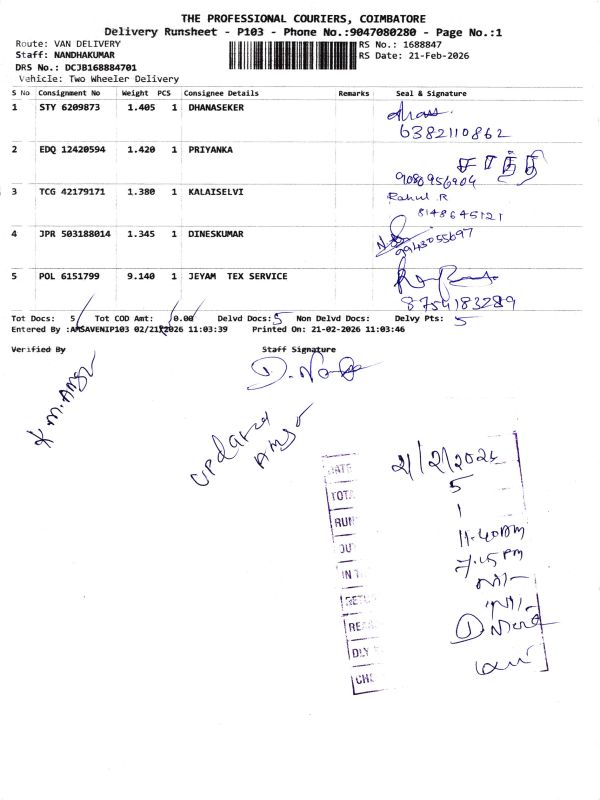 THE PROFESSIONAL COURIERS, COIMBATORE
Delivery Runsheet - P103 - Phone No.:9047080280 - Page No.:1
Route: VAN DELIVERY RS No.: 1688847
Staff: NANDHAKUMAR RS Date: 21-Feb-2026
DRS No.: DCJB168884701
Vehicle: Two Wheeler Delivery
S No Consignment No Weight PCS Consignee Details Remarks Seal & Signature
1 STY 6209873 1.405 1 DHANASEKER
6382110862
2 EDQ 12420594 1.420 1 PRIYANKA சாந்தி
9080956904
3 TCG 42179171 1.380 1 KALAISELVI Rahul R
8148645121
4 JPR 503188014 1.345 1 DINESKUMAR
9943055697
5 POL 6151799 9.140 1 JEYAM TEX SERVICE
8754183289
Tot Docs: 5 Tot COD Amt: 0.00 Delvd Docs: 5 Non Delvd Docs: Delvy Pts: 5
Entered By :AMSAVENIP103 02/21/2026 11:03:39 Printed On: 21-02-2026 11:03:46
Verified By Staff Signature
K.M.AMSA
DATE 21/2/2026
TOTA 5
RUN 1
OU 11.40AM
IN T 7.15PM
RETU Nil-
REA Nil-
DLY
CHE